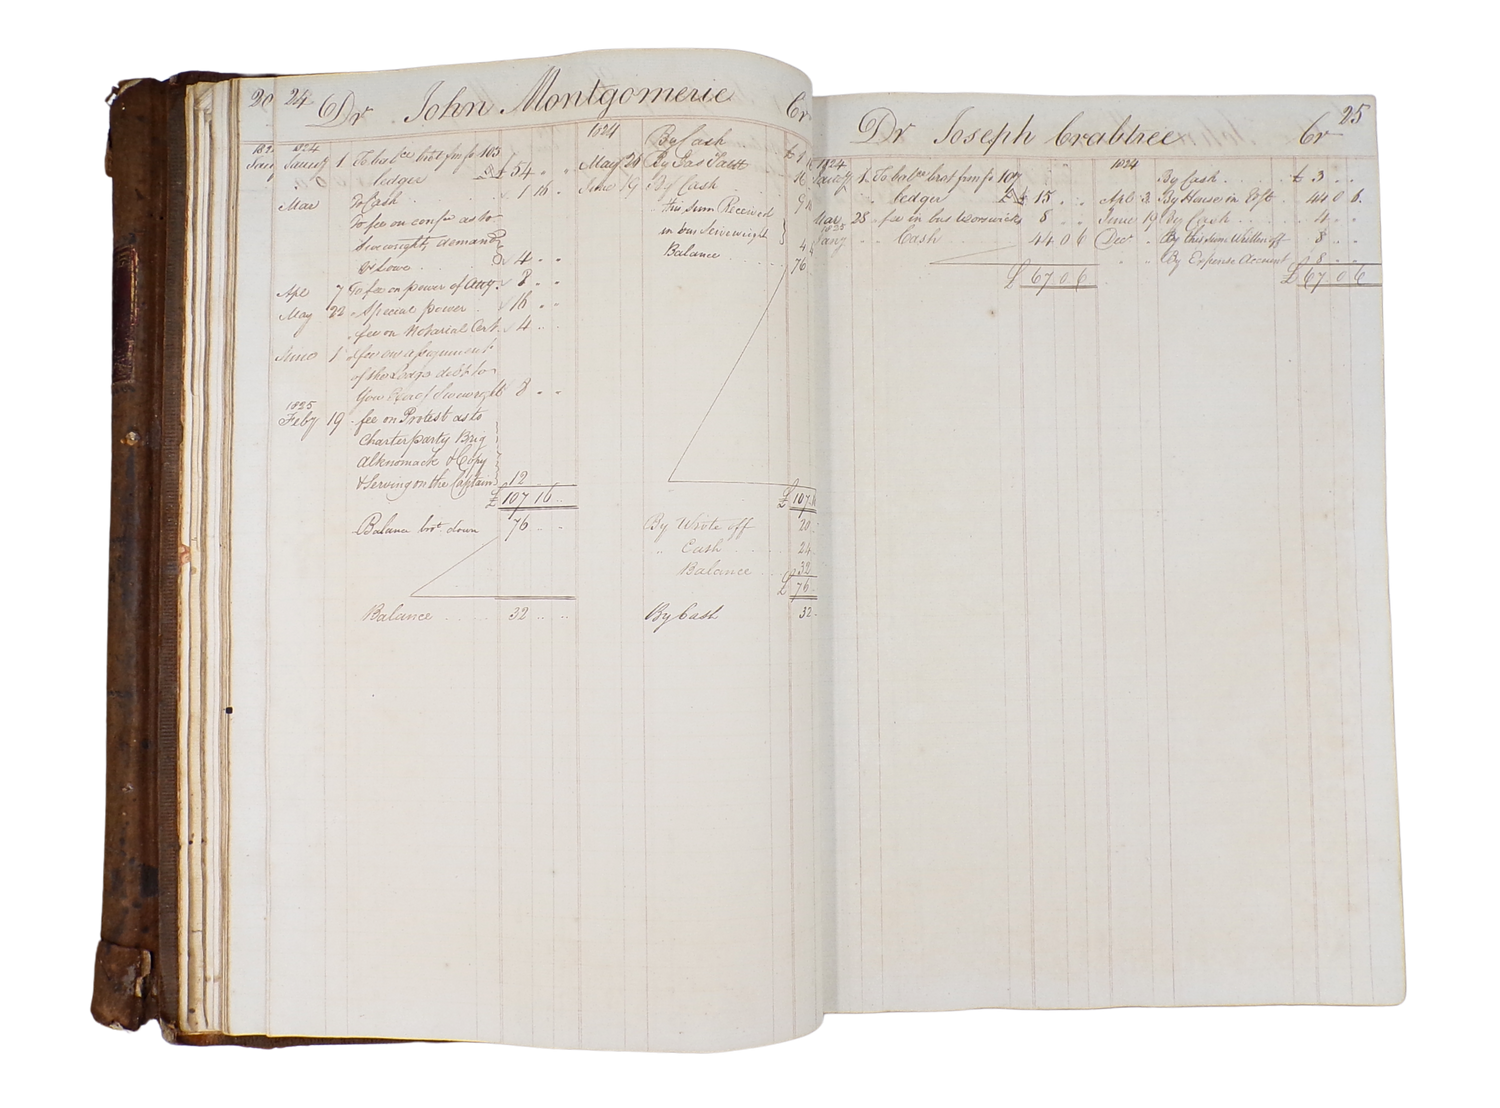 20 24 Dr John Montgomerie Cr
1824 1824 By Cash
Jany 1 To balce brot from fo 105
ledger £ 54 " " May 26 By Jas Taitt
Mar To Cash 1 16 " June 19 By Cash
To fee on as to this sum Received
demand in bus Sivewright
& Lowe 4 " " Balance 76
Apl 7 To fee on power of Atty 8 " "
May 22 " Special power 16 " "
" fee on Notarial Cert. 4 " "
June 1 " fee on assignment
of debt to
of Sivewright 8 " "
1825
Feby 19 fee on Protest as to
Charterparty Brig
Alknomack & Copy
& Serving on the Captain 12
£ 107 16 " £ 107 16
Balance brot down 76 " " By Wrote off 20
" Cash 24
Balance 32
£ 76
Balance 32 " " By Cash 32
Dr Joseph Crabtree Cr 25
1824 1824 By Cash £ 3 " "
Jany 1 To balce brot from fo 107
ledger £ 15 " " Apl 3 By House in 44 0 6
Mar 28 " fee in bus 8 " " June 19 By Cash 4 " "
1825
Jany " " Cash 44 0 6 Decr " By this sum Written off 8 " "
" " By Expense Account 8 " "
£ 67 0 6 £ 67 0 6